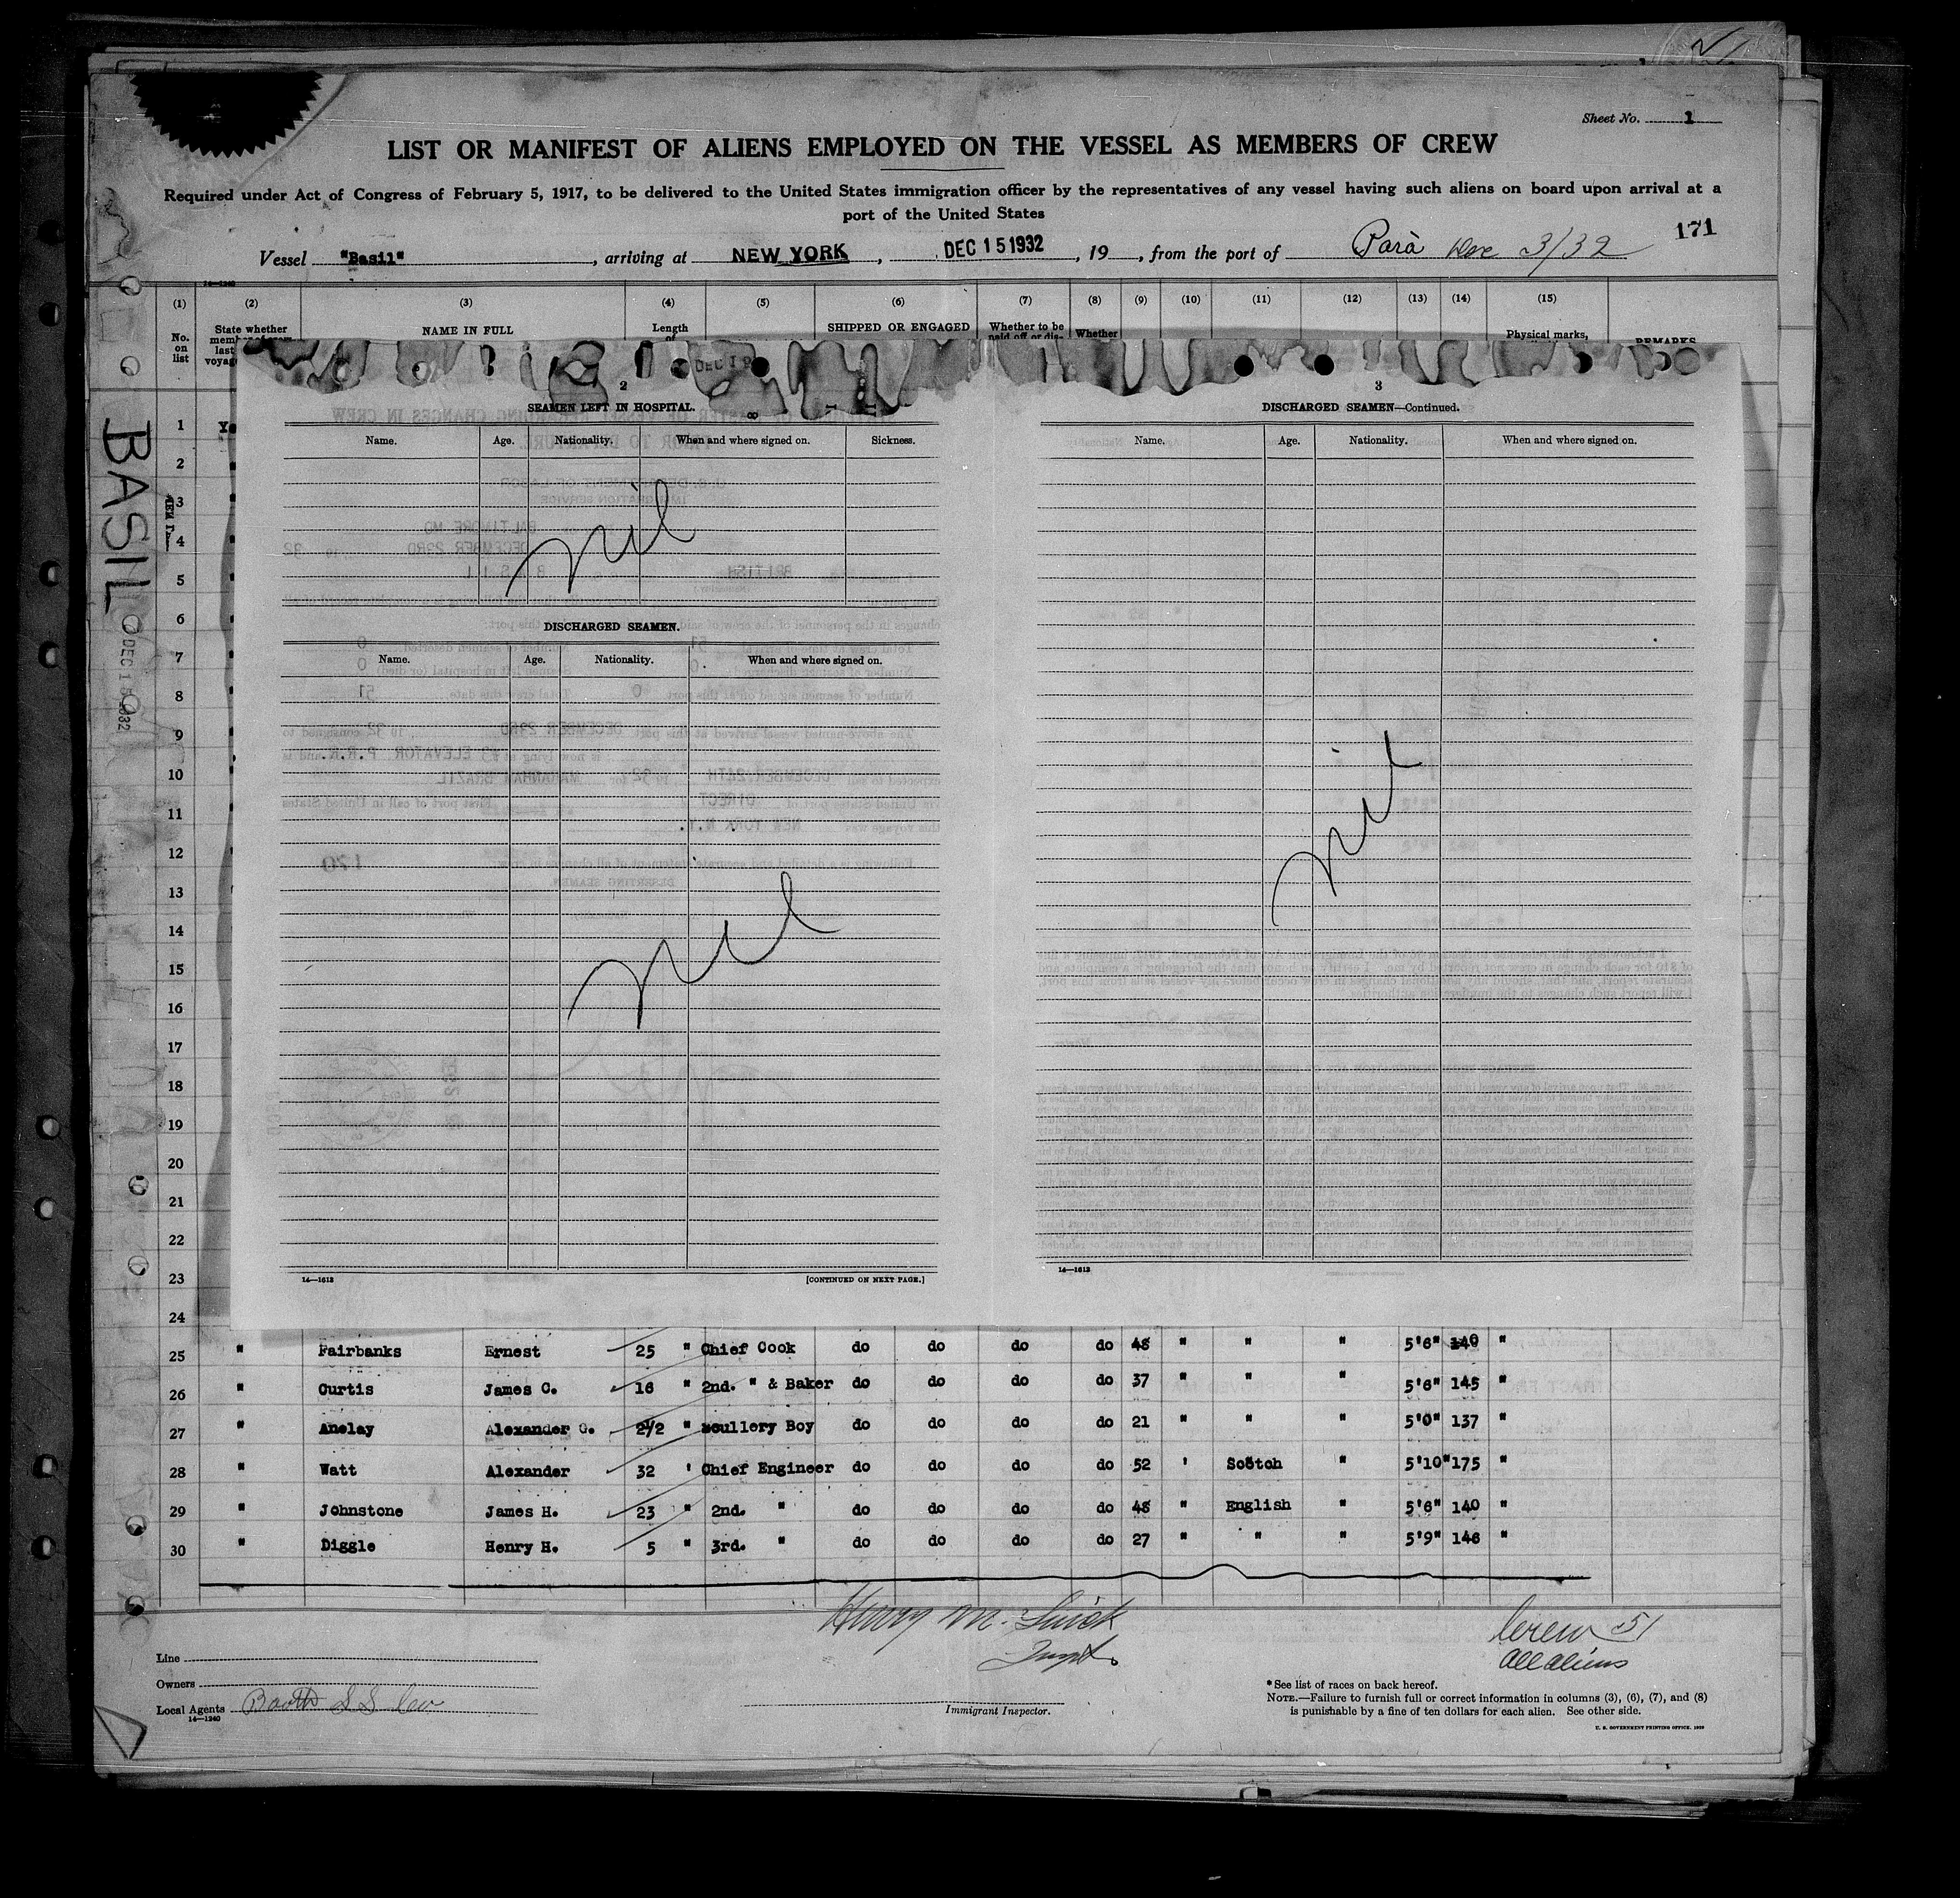 Sheet No. 1
LIST OR MANIFEST OF ALIENS EMPLOYED ON THE VESSEL AS MEMBERS OF CREW
Required under Act of Congress of February 5, 1917, to be delivered to the United States immigration officer by the representatives of any vessel having such aliens on board upon arrival at a
port of the United States
171
Vessel "Basil", arriving at NEW YORK, DEC 15 1932, 19, from the port of Parà Dec 3/32
14—1240
(1) (2) (3) (4) (5) (6) (7) (8) (9) (10) (11) (12) (13) (14) (15)
No. on list
State whether
NAME IN FULL
Length of
SHIPPED OR ENGAGED
Whether to be paid off or dis-
Whether
Physical marks,
REMARKS
BASIL
DEC 15 1932
2
SEAMEN LEFT IN HOSPITAL.
Name. Age. Nationality. When and where signed on. Sickness.
nil
DISCHARGED SEAMEN.
Name. Age. Nationality. When and where signed on.
nil
14—1613
[CONTINUED ON NEXT PAGE.]
3
DISCHARGED SEAMEN—Continued.
Name. Age. Nationality. When and where signed on.
nil
14—1613
1
2
3
4
5
6
7
8
9
10
11
12
13
14
15
16
17
18
19
20
21
22
23
24
25 " Fairbanks Ernest 25 " Chief Cook do do do do 48 " " " 5'6" 140 "
26 " Curtis James C. 16 " 2nd. " & Baker do do do do 37 " " " 5'6" 145 "
27 " Anelay Alexander G. 2½ " Scullery Boy do do do do 21 " " " 5'0" 137 "
28 " Watt Alexander 32 ' Chief Engineer do do do do 52 ' Scotch " 5'10" 175 "
29 " Johnstone James H. 23 " 2nd. " do do do do 48 " English " 5'6" 140 "
30 " Diggle Henry H. 5 " 3rd. " do do do do 27 " " " 5'9" 146 "
Henry M.
Inspt.
Crew 51
All aliens
Line
Owners
Local Agents Booth S S Co
14—1240
Immigrant Inspector.
* See list of races on back hereof.
NOTE.—Failure to furnish full or correct information in columns (3), (6), (7), and (8)
is punishable by a fine of ten dollars for each alien. See other side.
U. S. GOVERNMENT PRINTING OFFICE. 1929